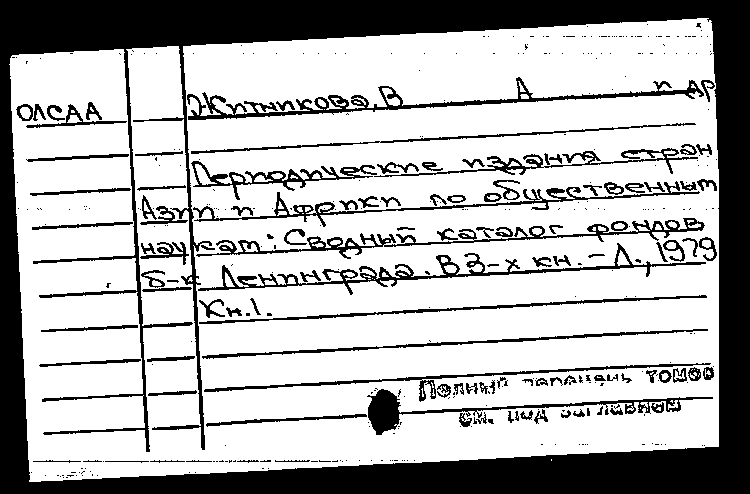 ОЛСАА Житникова, В А и др
Периодические издания стран
Азии и Африки по общественным
наукам: Сводный каталог фондов
б-к Ленинграда. В 3-х кн. – Л., 1979
Кн. 1.
Полный перечень томов
см. под заглавием